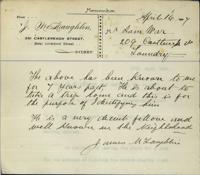 Memorandum
From
J. McLaughlin,
251 CASTLEREAGH STREET,
SYDNEY
April 16
To Sam War
209 Castlereagh St
Laundry
The above has been known to me
for 7 years past. He is about to
take a trip home and this is for
the purpose of identifying him
He is a very decent fellow and
well known in the neighborhood
James McLaughlin